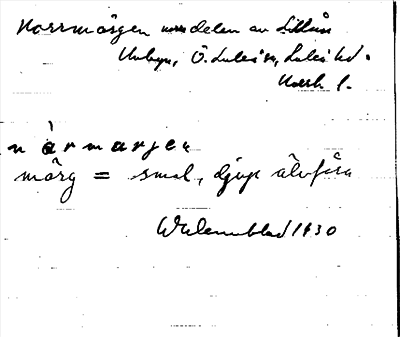 Norrmårgen delen av Lillån
Unbyn, Ö. Luleå sn, Luleå td.
Norrb l.
nårmarjen
mårg = smal, djup älvfåra
Wilennblad 1930